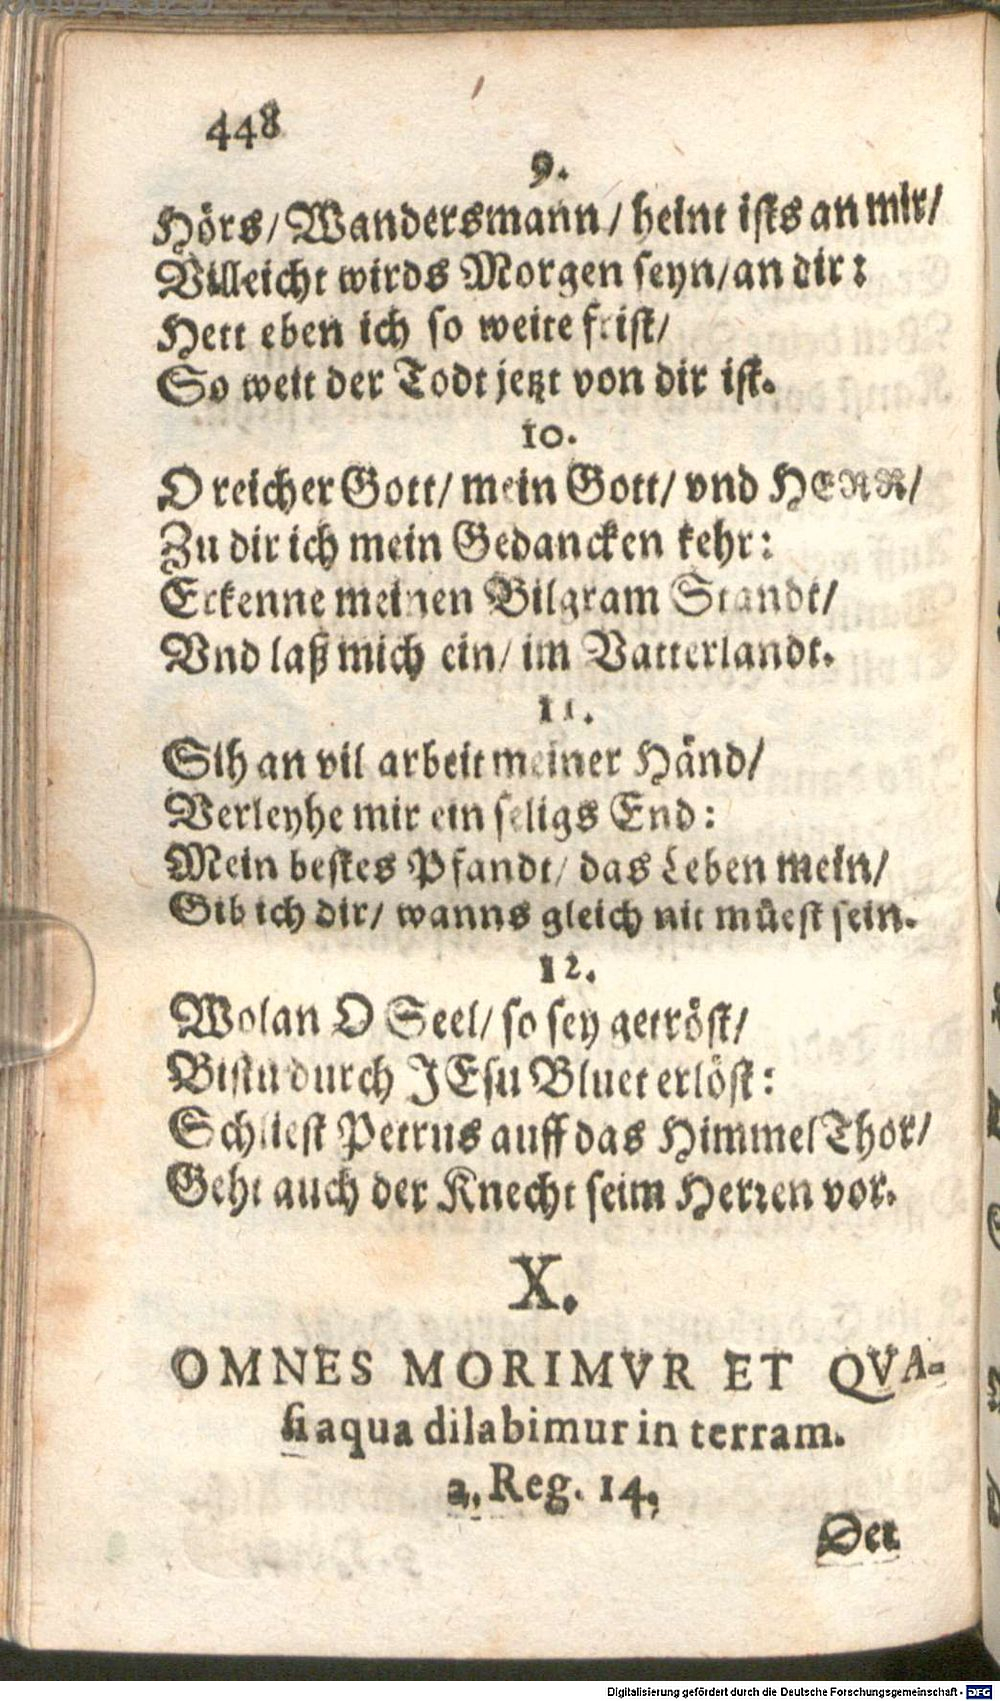 448
9.
Hörs/ Wandersmann/ heint ists an mir/
Villeicht wirds Morgen seyn/ an dir:
Hett eben ich so weite frist/
So weit der Todt jetzt von dir ist.
10.
O reicher Gott/ mein Gott/ vnd HERR/
Zu dir ich mein Gedancken kehr:
Erkenne meinen Bilgram Standt/
Vnd laß mich ein/ im Vatterlandt.
11.
Sih an vil arbeit meiner Händ/
Verleyhe mir ein seligs End:
Mein bestes Pfandt/ das Leben mein/
Gib ich dir/ wanns gleich nit müest sein.
12.
Wolan O Seel/ so sey getröst/
Bistu durch JEsu Bluet erlöst:
Schliest Petrus auff das Himmel Thor/
Geht auch der Knecht seim Herren vor.
X.
OMNES MORIMVR ET QVA-
si aqua dilabimur in terram.
2. Reg. 14.
Der
Digitalisierung gefördert durch die Deutsche Forschungsgemeinschaft - DFG